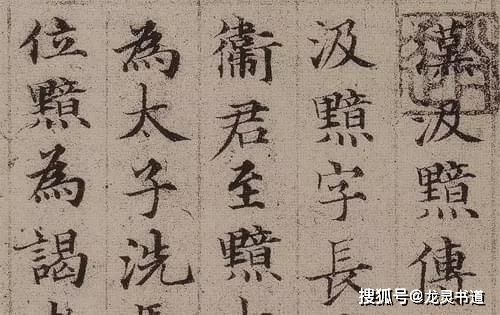 漢汲黯傳
汲黯字長
衞君至黯
為太子洗
位黯為謁
搜狐号@龙灵书道